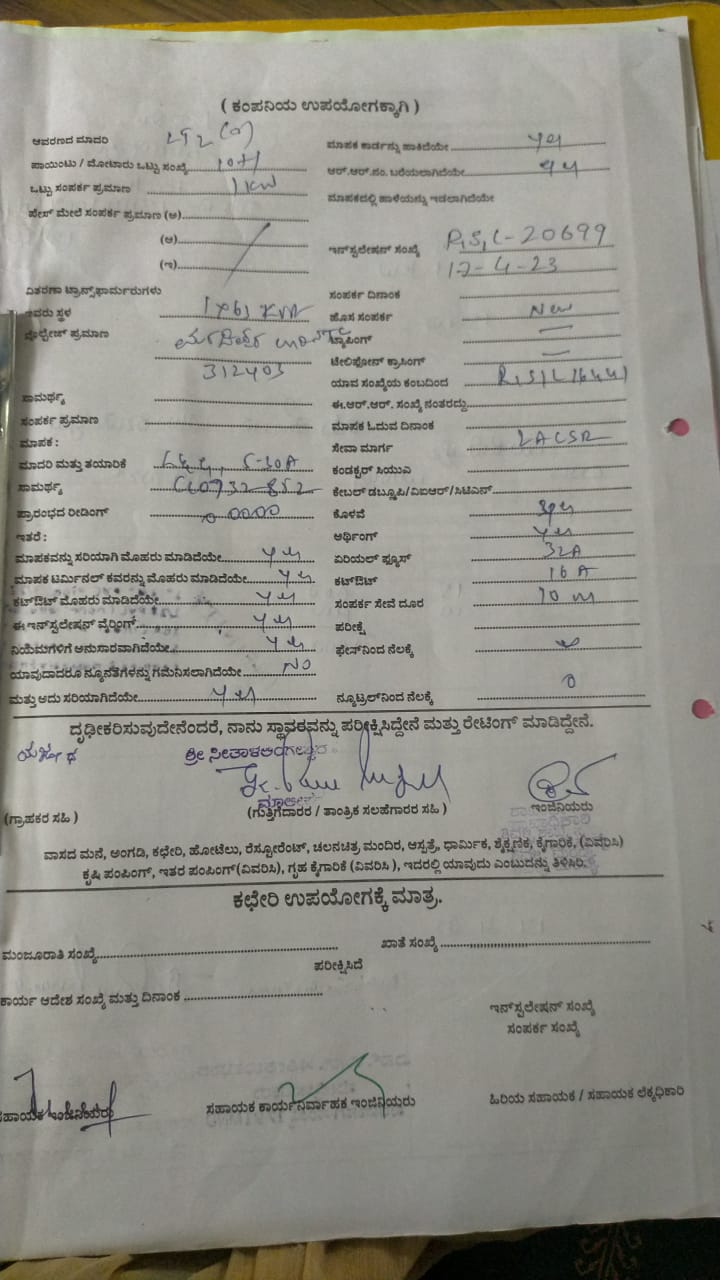 ( ಕಂಪನಿಯ ಉಪಯೋಗಕ್ಕಾಗಿ )
ಆವರಣದ ಮಾದರಿ
ಪಾಯಿಂಟು / ಮೋಟಾರು ಒಟ್ಟು ಸಂಖ್ಯೆ 10+1
ಒಟ್ಟು ಸಂಪರ್ಕ ಪ್ರಮಾಣ 1 KW
ಫೇಸ್ ಮೇಲೆ ಸಂಪರ್ಕ ಪ್ರಮಾಣ (ಅ)
(ಆ)
(ಇ)
ವಿತರಣಾ ಟ್ರಾನ್ಸ್‌ಫಾರ್ಮರುಗಳು
ಇವರು ಸ್ಥಳ 1x63 KVA
ವೋಲ್ಟೇಜ್ ಪ್ರಮಾಣ
312403
ಸಾಮರ್ಥ್ಯ
ಸಂಪರ್ಕ ಪ್ರಮಾಣ
ಮಾಪಕ :
ಮಾದರಿ ಮತ್ತು ತಯಾರಿಕೆ 5-30A
ಸಾಮರ್ಥ್ಯ
ಪ್ರಾರಂಭದ ರೀಡಿಂಗ್ 0000
ಇತರೆ :
ಮಾಪಕವನ್ನು ಸರಿಯಾಗಿ ಮೊಹರು ಮಾಡಿದೆಯೇ yes
ಮಾಪಕ ಟರ್ಮಿನಲ್ ಕವರನ್ನು ಮೊಹರು ಮಾಡಿದೆಯೇ yes
ಕಟ್‌ಔಟ್ ಮೊಹರು ಮಾಡಿದೆಯೇ yes
ಈ ಇನ್‌ಸ್ಟಲೇಷನ್ ವೈರಿಂಗ್ yes
ನಿಯಮಗಳಿಗೆ ಅನುಸಾರವಾಗಿದೆಯೇ yes
ಯಾವುದಾದರೂ ನ್ಯೂನತೆಗಳನ್ನು ಗಮನಿಸಲಾಗಿದೆಯೇ NO
ಮತ್ತು ಅದು ಸರಿಯಾಗಿದೆಯೇ yes
ಮಾಪಕ ಕಾರ್ಡನ್ನು ಹಾಕಿದೆಯೇ yes
ಆರ್.ಆರ್.ನಂ. ಬರೆಯಲಾಗಿದೆಯೇ yes
ಮಾಪಕದಲ್ಲಿ ಹಾಳೆಯನ್ನು ಇಡಲಾಗಿದೆಯೇ
ಇನ್‌ಸ್ಟಲೇಷನ್ ಸಂಖ್ಯೆ R,S,L-20699
17-4-23
ಸಂಪರ್ಕ ದಿನಾಂಕ
ಹೊಸ ಸಂಪರ್ಕ New
ಟ್ಯಾಪಿಂಗ್
ಟೆಲಿಫೋನ್ ಕ್ರಾಸಿಂಗ್
ಯಾವ ಸಂಖ್ಯೆಯ ಕಂಬದಿಂದ
ಈ.ಆರ್.ಆರ್. ಸಂಖ್ಯೆ ನಂತರದ್ದು
ಮಾಪಕ ಓದುವ ದಿನಾಂಕ
ಸೇವಾ ಮಾರ್ಗ 2ACSR
ಕಂಡಕ್ಟರ್ ಸಿಯುಎ
ಕೇಬಲ್ ಡಬ್ಲೂಪಿ/ವಿಐಆರ್/ಸಿಟಿಎಸ್
ಕೊಳವೆ
ಅರ್ಥಿಂಗ್ yes
ಏರಿಯಲ್ ಫ್ಯೂಸ್ 32A
ಕಟ್‌ಔಟ್ 16 A
ಸಂಪರ್ಕ ಸೇವೆ ದೂರ 10 m
ಪರೀಕ್ಷೆ
ಫೇಸ್‌ನಿಂದ ನೆಲಕ್ಕೆ
ನ್ಯೂಟ್ರಲ್‌ನಿಂದ ನೆಲಕ್ಕೆ 0
ದೃಢೀಕರಿಸುವುದೇನೆಂದರೆ, ನಾನು ಸ್ಥಾವರವನ್ನು ಪರೀಕ್ಷಿಸಿದ್ದೇನೆ ಮತ್ತು ರೇಟಿಂಗ್ ಮಾಡಿದ್ದೇನೆ.
(ಗ್ರಾಹಕರ ಸಹಿ ) (ಗುತ್ತಿಗೆದಾರರ / ತಾಂತ್ರಿಕ ಸಲಹೆಗಾರರ ಸಹಿ ) ಇಂಜಿನಿಯರು
ವಾಸದ ಮನೆ, ಅಂಗಡಿ, ಕಛೇರಿ, ಹೋಟೆಲು, ರೆಸ್ಟೋರೆಂಟ್, ಚಲನಚಿತ್ರ ಮಂದಿರ, ಆಸ್ಪತ್ರೆ, ಧಾರ್ಮಿಕ, ಶೈಕ್ಷಣಿಕ, ಕೈಗಾರಿಕೆ, (ವಿವರಿಸಿ)
ಕೃಷಿ ಪಂಪಿಂಗ್, ಇತರ ಪಂಪಿಂಗ್(ವಿವರಿಸಿ), ಗೃಹ ಕೈಗಾರಿಕೆ (ವಿವರಿಸಿ ), ಇದರಲ್ಲಿ ಯಾವುದು ಎಂಬುದನ್ನು ತಿಳಿಸಿರಿ.
ಕಛೇರಿ ಉಪಯೋಗಕ್ಕೆ ಮಾತ್ರ.
ಮಂಜೂರಾತಿ ಸಂಖ್ಯೆ ಖಾತೆ ಸಂಖ್ಯೆ
ಪರೀಕ್ಷಿಸಿದೆ
ಕಾರ್ಯ ಆದೇಶ ಸಂಖ್ಯೆ ಮತ್ತು ದಿನಾಂಕ
ಇನ್‌ಸ್ಟಲೇಷನ್ ಸಂಖ್ಯೆ
ಸಂಪರ್ಕ ಸಂಖ್ಯೆ
ಸಹಾಯಕ ಇಂಜಿನಿಯರು ಸಹಾಯಕ ಕಾರ್ಯನಿರ್ವಾಹಕ ಇಂಜಿನಿಯರು ಹಿರಿಯ ಸಹಾಯಕ / ಸಹಾಯಕ ಲೆಕ್ಕಾಧಿಕಾರಿ